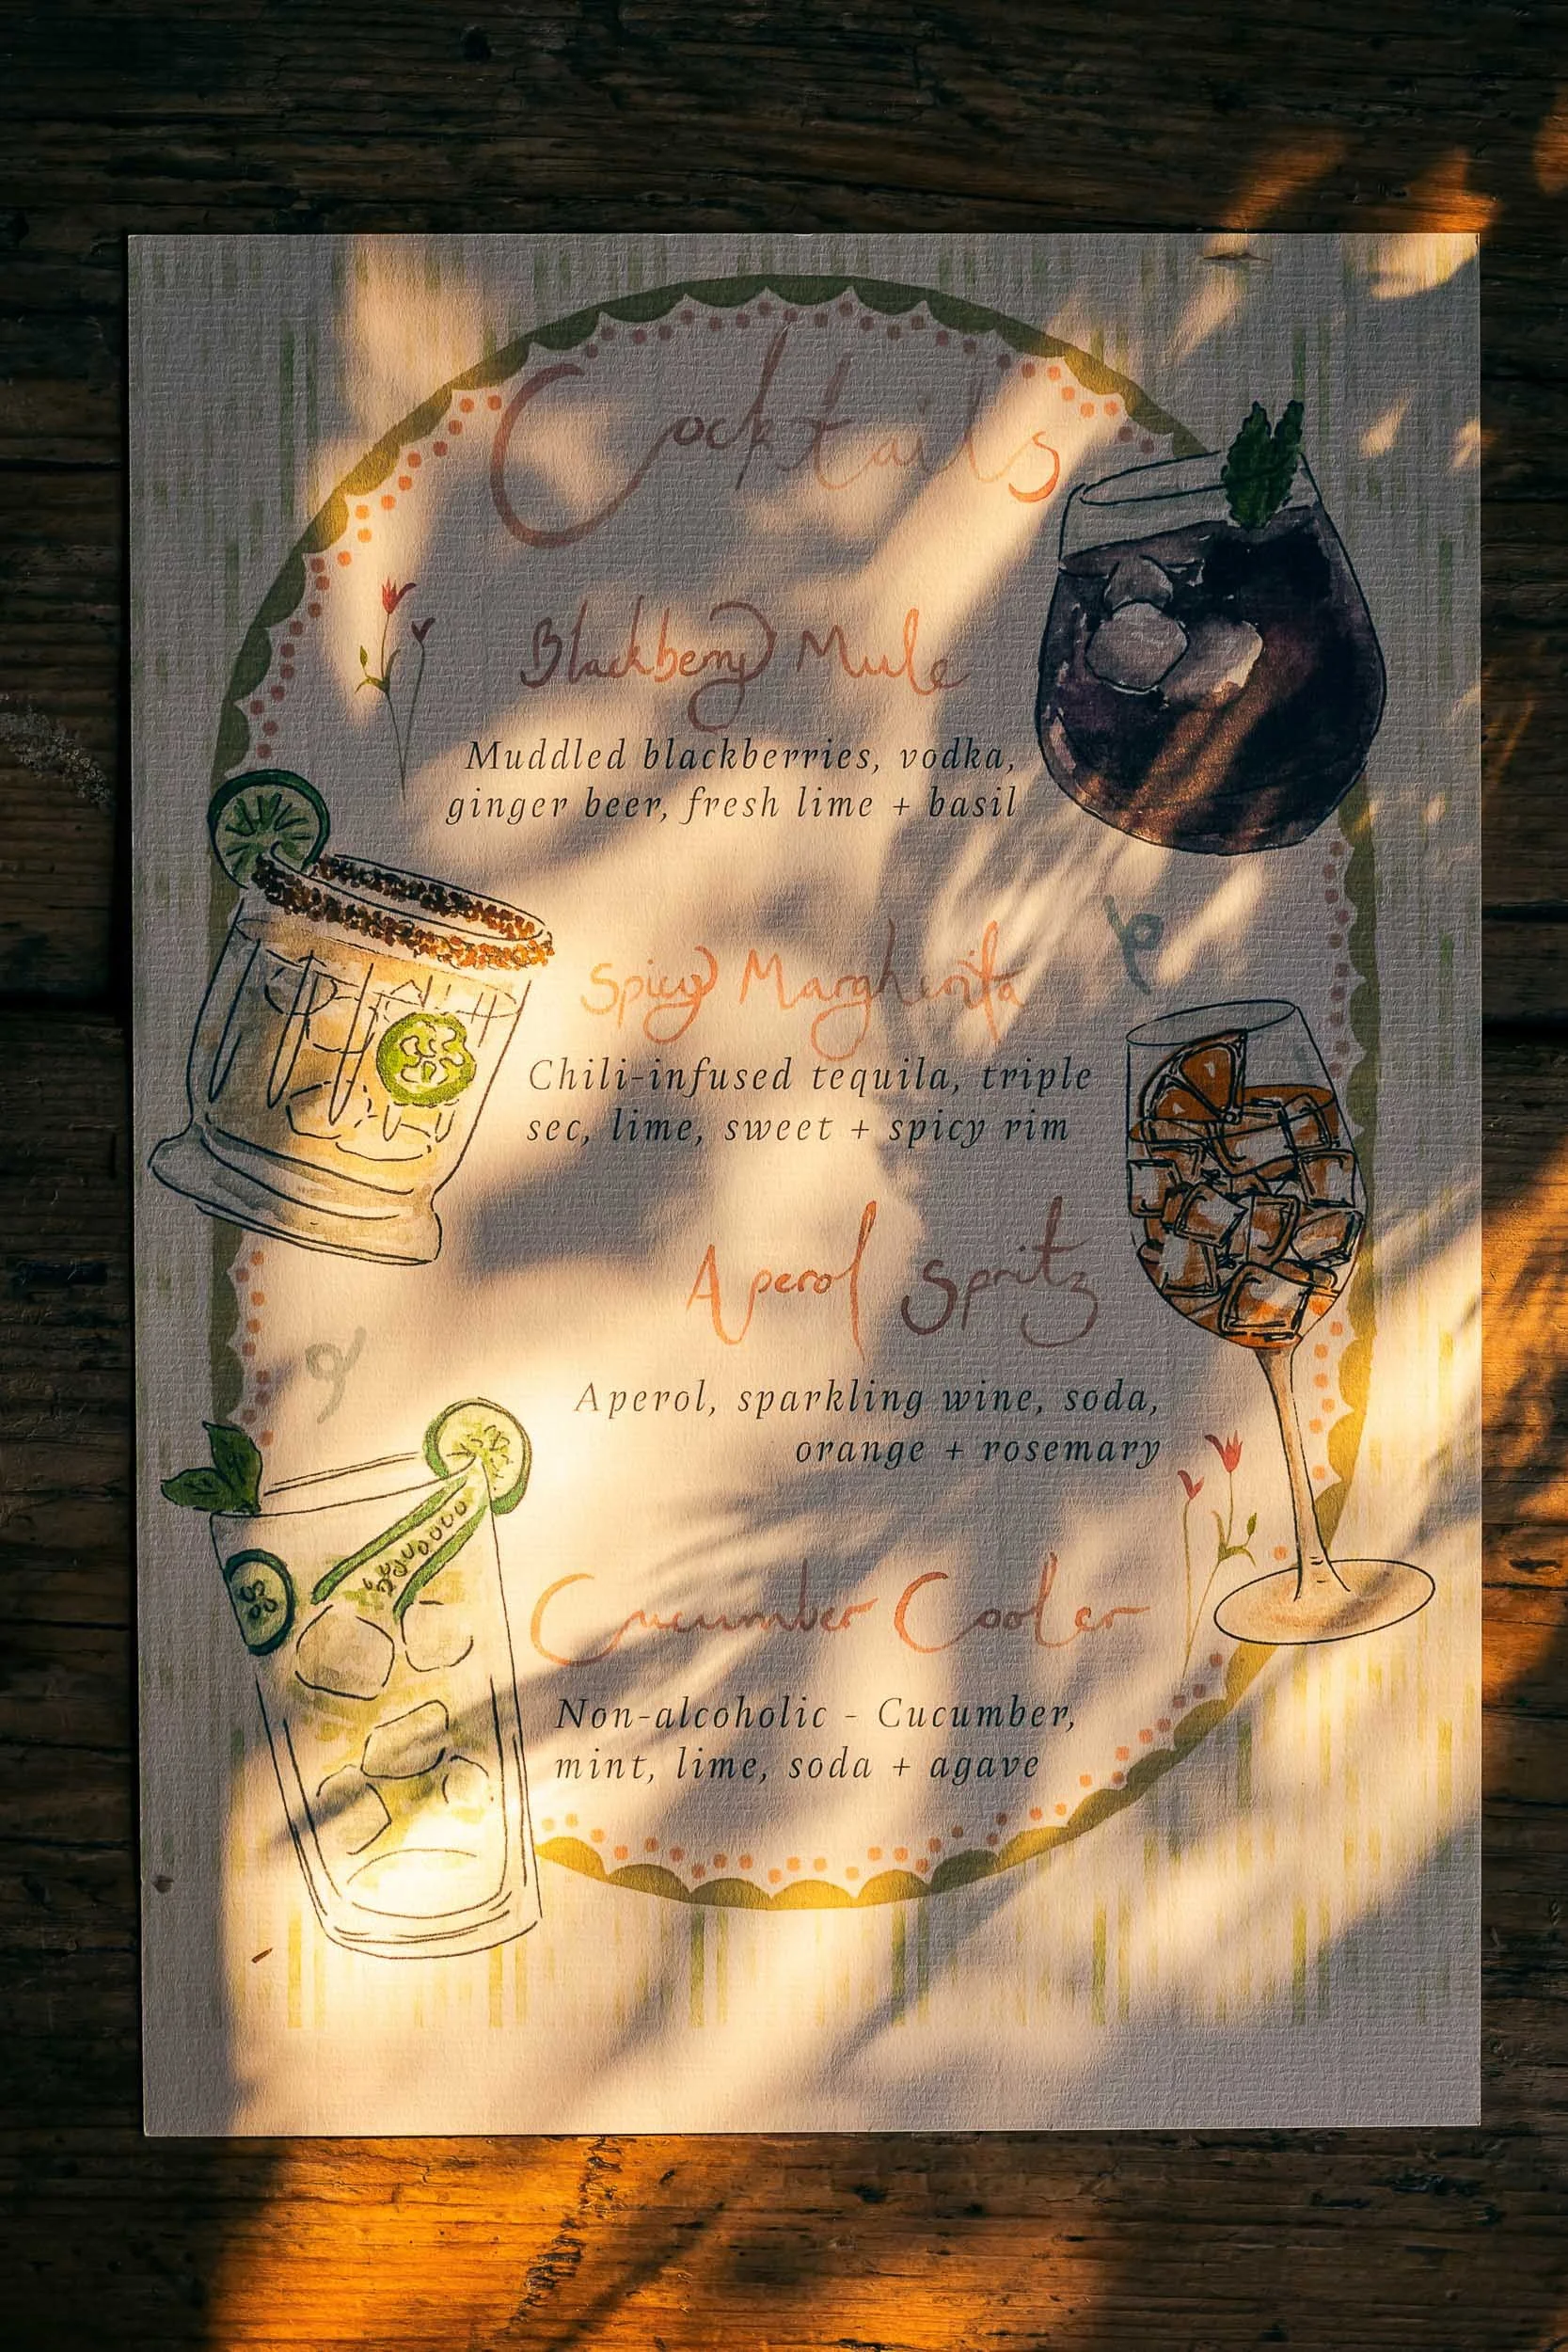 Cocktails
Blackberry Mule
Muddled blackberries, vodka,
ginger beer, fresh lime + basil
Spicy Margherita
Chili-infused tequila, triple
sec, lime, sweet + spicy rim
Aperol Spritz
Aperol, sparkling wine, soda,
orange + rosemary
Cucumber Cooler
Non-alcoholic - Cucumber,
mint, lime, soda + agave